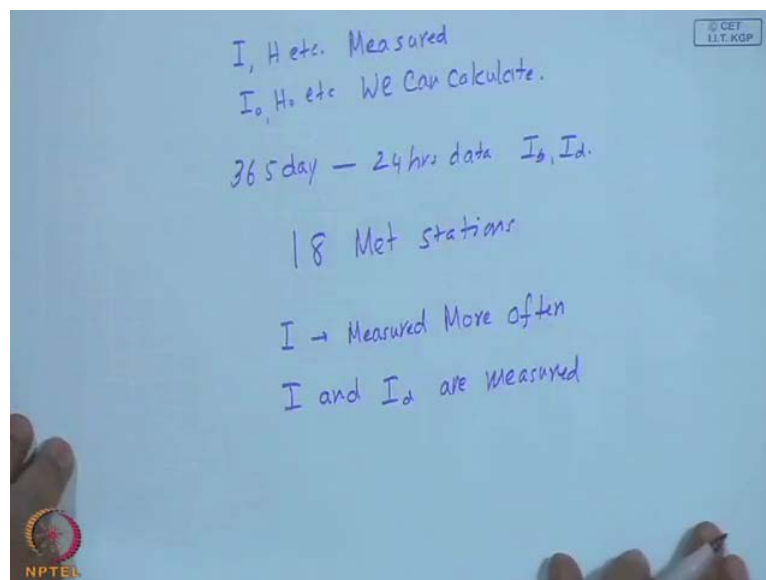 I, H etc. Measured
I₀, H₀ etc We Can Calculate.
365 day — 24 hrs data I_b, I_d.
18 Met stations
I → Measured More often
I and I_d are measured
© CET
I.I.T. KGP
NPTEL